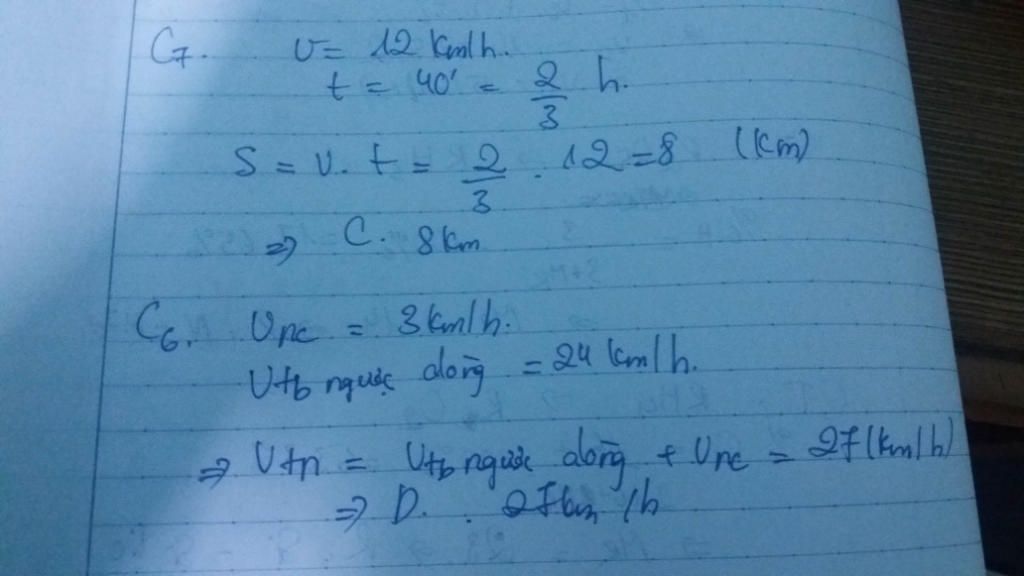 C7. v = 12 km/h.
t = 40' = 2/3 h.
S = v. t = 2/3 . 12 = 8 (km)
=> C. 8km
C6. Vnc = 3km/h.
Vtb ngược dòng = 24 km/h.
=> Vtn = Vtb ngược dòng + Vnc = 27(km/h)
=> D. 27km/h